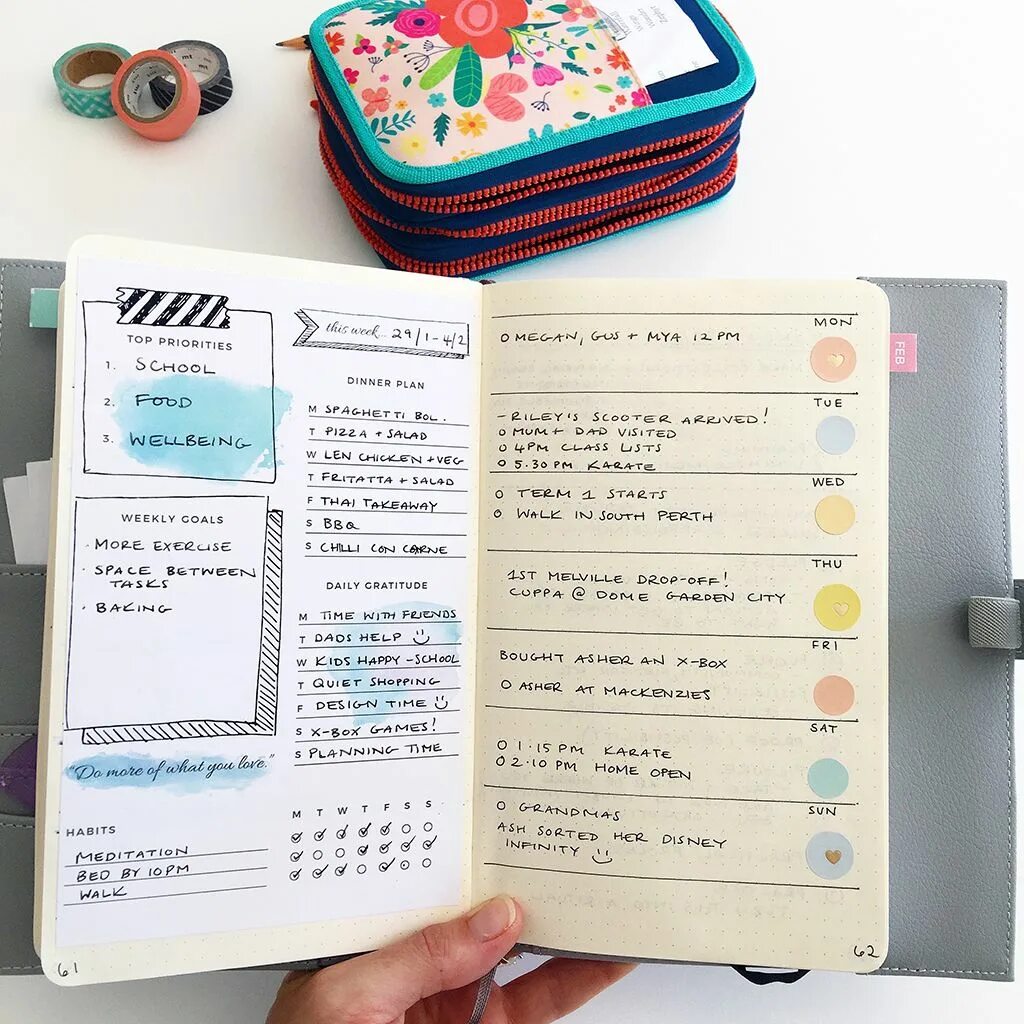 mt
TOP PRIORITIES
1. SCHOOL
2. FOOD
3. WELLBEING
WEEKLY GOALS
· MORE EXERCISE
· SPACE BETWEEN
TASKS
· BAKING
"Do more of what you love."
HABITS
MEDITATION
BED BY 10PM
WALK
this week... 29/1-4/2
DINNER PLAN
M SPAGHETTI BOL.
T PIZZA + SALAD
W LEN CHICKEN + VEG
T FRITATTA + SALAD
F THAI TAKEAWAY
S BBQ
S CHILLI CON CARNE
DAILY GRATITUDE
M TIME WITH FRIENDS
T DADS HELP
W KIDS HAPPY - SCHOOL
T QUIET SHOPPING
F DESIGN TIME
S X-BOX GAMES!
S PLANNING TIME
M T W T F S S
61
MON
O MEGAN, GUS + MYA 12 PM
TUE
- RILEY'S SCOOTER ARRIVED!
O MUM + DAD VISITED
O 4PM CLASS LISTS
O 5.30 PM KARATE
WED
O TERM 1 STARTS
O WALK IN SOUTH PERTH
THU
1ST MELVILLE DROP-OFF!
CUPPA @ DOME GARDEN CITY
FRI
BOUGHT ASHER AN X-BOX
O ASHER AT MACKENZIES
SAT
O 1:15 PM KARATE
O 2.10 PM HOME OPEN
SUN
O GRANDMAS
ASH SORTED HER DISNEY
INFINITY
62
FEB